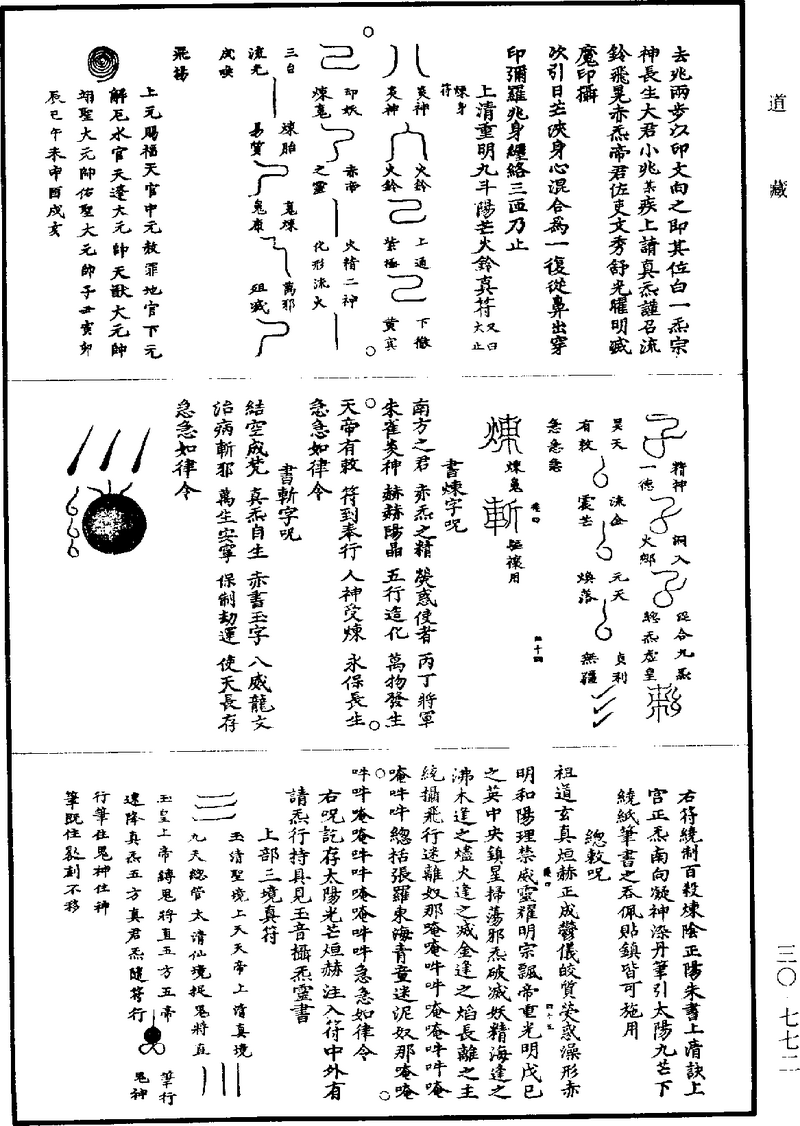 道藏
去兆兩步以印文向之即其位白一炁宗
神長生大君小兆某疾上請真炁謹召流
鈴飛晃赤炁帝君佐吏文秀舒光曜明滅
魔印攝
次引日芒浹身心混合為一復從鼻出穿
印彌羅兆身纏絡三匝乃止
上清重明九斗陽芒火鈴真符又曰大止
煉身符
炎神 炎神
火鈴 火鈴
上通 紫極
下徹 黃寘
印妖 煉鬼
赤帝 之靈
火精二神 化形流火
三台
煉胎 易質
鬼煉 鬼康
萬邪 殂滅
流光 戌喚
飛揚
上元賜福天官中元赦罪地官下元
解厄水官天蓬大元帥天猷大元帥
翊聖大元帥佑聖大元帥子丑寅卯
辰巳午未申酉戌亥
精神 一德
洞入 火鄉
混合九炁 總炁虛皇
昊天 有敕
流金 震芒
元天 煥落
貞利 無疆
急急急
煉 煉鬼
斬 驅禳用
書煉字呪
南方之君 赤炁之精 熒惑使者 丙丁將軍
朱雀炎神 赫赫陽晶 五行造化 萬物發生
天帝有敕 符到奉行 人神受煉 永保長生
急急如律令
書斬字呪
結空成梵 真炁自生 赤書玉字 八威龍文
治病斬邪 萬生安寧 保制劫運 使天長存
急急如律令
右符統制百殺煉陰正陽朱書上清訣上
宮正炁南向凝神染丹筆引太陽九芒下
繞紙筆書之吞佩貼鎮皆可施用
總敕呪
祖道玄真烜赫正成鬱儀皎質熒惑澡形赤
明和陽理禁威靈耀明宗飄帝重光明戊己
之英中央鎮星掃蕩邪炁破滅妖精海達之
沸木達之燼火達之滅金達之焰長離之主
統攝飛行迷離奴那唵唵吽吽唵唵吽吽唵
唵吽吽總括張羅東海青童迷泥奴那唵唵
吽吽唵唵吽吽唵唵吽吽急急如律令
右呪訖存太陽光芒烜赫注入符中外有
請炁行持具見玉音攝炁靈書
上部三境真符
玉清聖境上天天帝上清真境
九天總管太清仙境捉鬼將直
玉皇上帝縛鬼將直五方五帝
速降真炁五方真君炁隨筆行
筆行鬼神
行筆住鬼神住神
筆既住裂刻不移
三〇·七七二